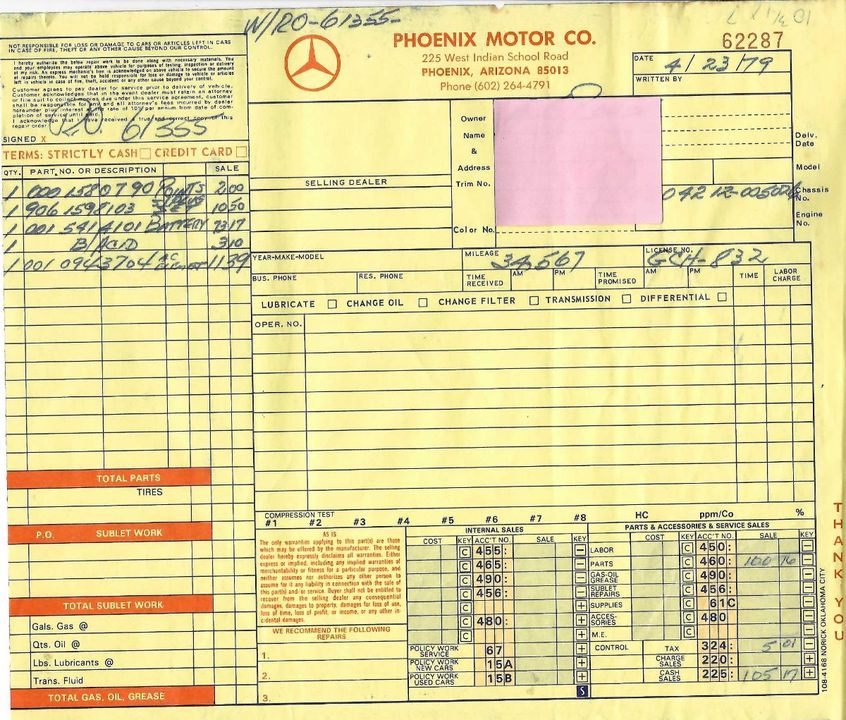 W/RO-61355
PHOENIX MOTOR CO.
225 West Indian School Road
PHOENIX, ARIZONA 85013
Phone (602) 264-4791
62287
DATE 4/23/79
WRITTEN BY
NOT RESPONSIBLE FOR LOSS OR DAMAGE TO CARS OR ARTICLES LEFT IN CARS
IN CASE OF FIRE, THEFT OR ANY OTHER CAUSE BEYOND OUR CONTROL.
I hereby authorize the below repair work to be done along with necessary materials. You
and your employees may operate above vehicle for purposes of testing, inspection or delivery
at my risk. An express mechanic's lien is acknowledged on above vehicle to secure the amount
of repairs thereto. You will not be held responsible for loss or damage to vehicle or articles
left in vehicle in case of fire, theft, accident or any other cause beyond your control.
Customer agrees to pay dealer for service prior to delivery of vehicle.
61355
SIGNED X
TERMS: STRICTLY CASH CREDIT CARD
QTY. PART NO. OR DESCRIPTION SALE
1 000 1580790 POINTS 2.00
1 906 1598103 10.50
1 001 5414101 BATTERY 73.17
1 B/ACID 3.10
1 001 0943704 11.39
Owner
Name
&
Address
Trim No.
Color No.
Delv. Date
Model
Chassis No.
Engine No.
SELLING DEALER
YEAR-MAKE-MODEL
MILEAGE 34,567
LICENSE NO. GCH-832
BUS. PHONE RES. PHONE TIME RECEIVED AM PM TIME PROMISED AM PM TIME LABOR CHARGE
LUBRICATE CHANGE OIL CHANGE FILTER TRANSMISSION DIFFERENTIAL
OPER. NO.
TOTAL PARTS
TIRES
P.O. SUBLET WORK
TOTAL SUBLET WORK
Gals. Gas @
Qts. Oil @
Lbs. Lubricants @
Trans. Fluid
TOTAL GAS, OIL, GREASE
COMPRESSION TEST
#1 #2 #3 #4 #5 #6 #7 #8 HC ppm/Co %
AS IS
The only warranties applying to this part(s) are those
which may be offered by the manufacturer. The selling
dealer hereby expressly disclaims all warranties. Either
express or implied, including any implied warranties of
merchantability or fitness for a particular purpose, and
neither assumes nor authorizes any other person to
assume for it any liability in connection with the sale of
this part(s) and/or service. Buyer shall not be entitled to
recover from the selling dealer any consequential
damages, damages to property, damages for loss of use,
loss of time, loss of profit, or income, or any other incidental damages.
WE RECOMMEND THE FOLLOWING
REPAIRS
1.
2.
3.
INTERNAL SALES
COST KEY ACC'T NO. SALE KEY
C 455: −
C 465: −
C 490: −
C 456: −
C +
C 480: +
C +
POLICY WORK SERVICE 67 +
POLICY WORK NEW CARS 15A +
POLICY WORK USED CARS 15B +
S
PARTS & ACCESSORIES & SERVICE SALES
COST KEY ACC'T NO. SALE KEY
LABOR C 450:
PARTS C 460: 100 16
GAS-OIL GREASE C 490:
SUBLET REPAIRS C 456:
SUPPLIES C 61C
ACCESSORIES C 480
M.E. C
CONTROL TAX 324: 5 01
CHARGE SALES 220:
CASH SALES 225: 105 17
THANK YOU
108-4168 NORICK OKLAHOMA CITY